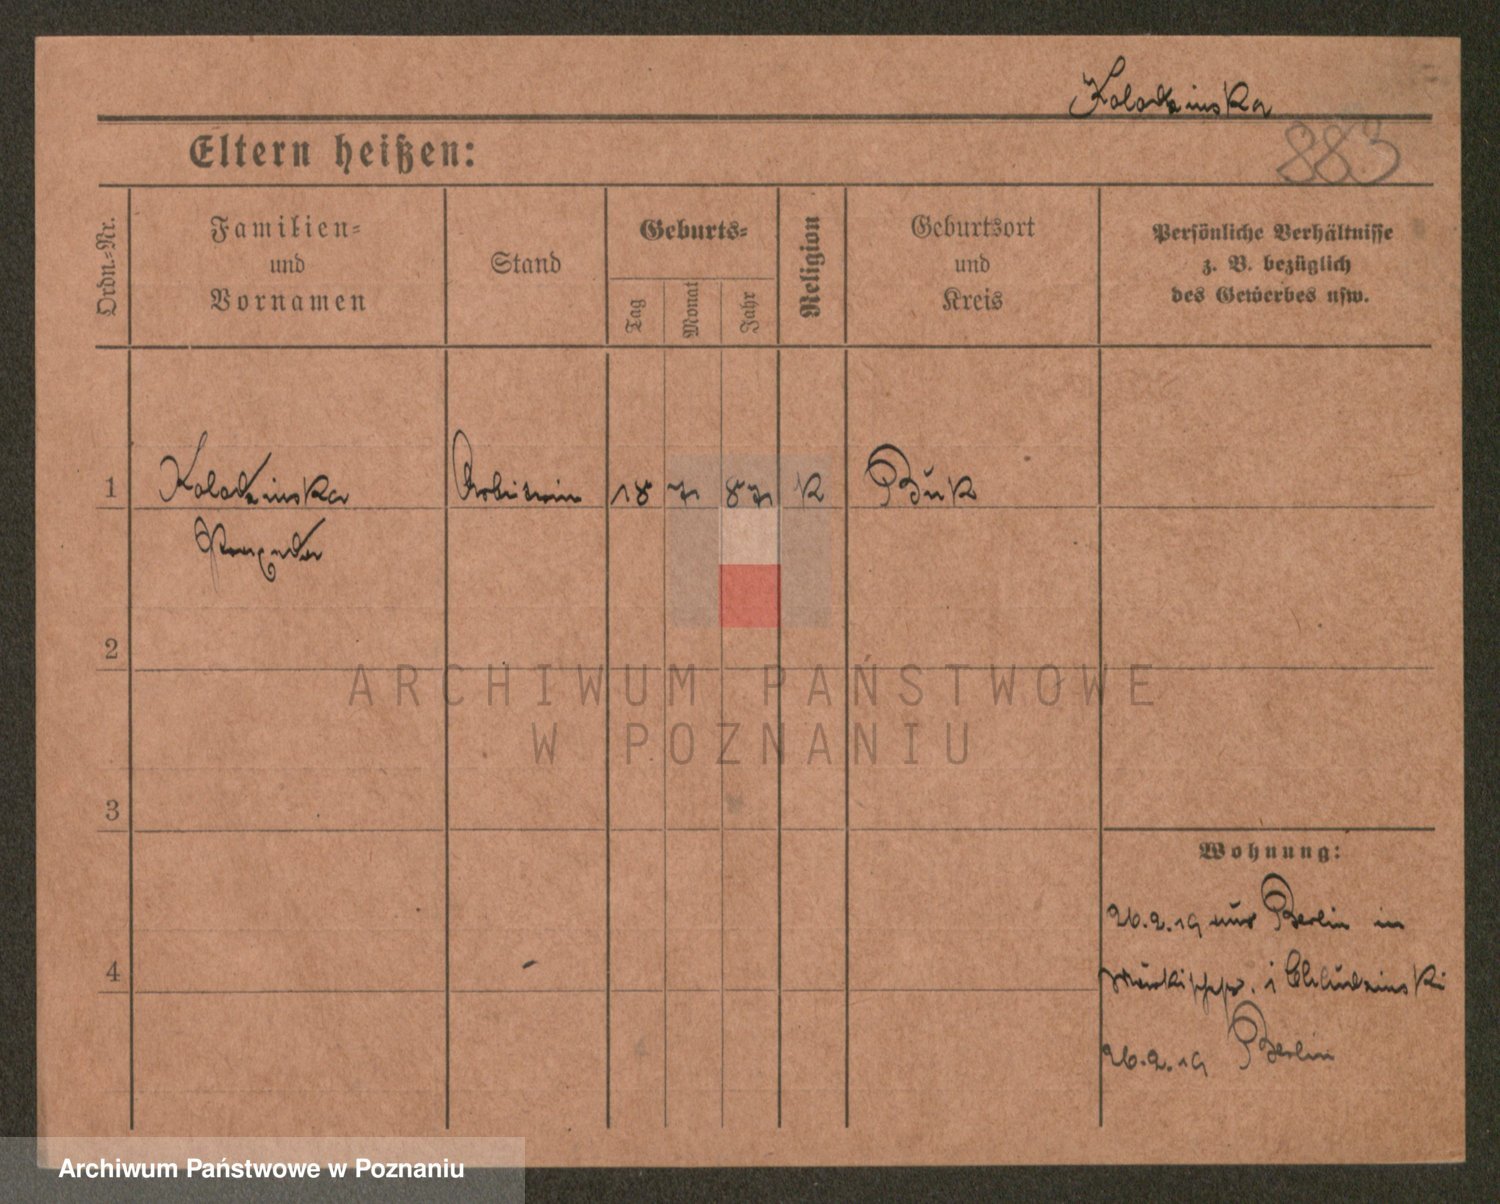 Kolodzinska
883
Eltern heißen:
Ordn.-Nr.
Familien-
und
Vornamen
Stand
Geburts-
Tag
Monat
Jahr
Religion
Geburtsort
und
Kreis
Persönliche Verhältnisse
z. B. bezüglich
des Gewerbes usw.
1 Kolodzinska Arbeiterin 18 7 87 K Buk
2
3
4
Wohnung:
26.2.19 aus Berlin in
1 Chludzinski
26.2.19 Berlin
ARCHIWUM PAŃSTWOWE
W POZNANIU
Archiwum Państwowe w Poznaniu